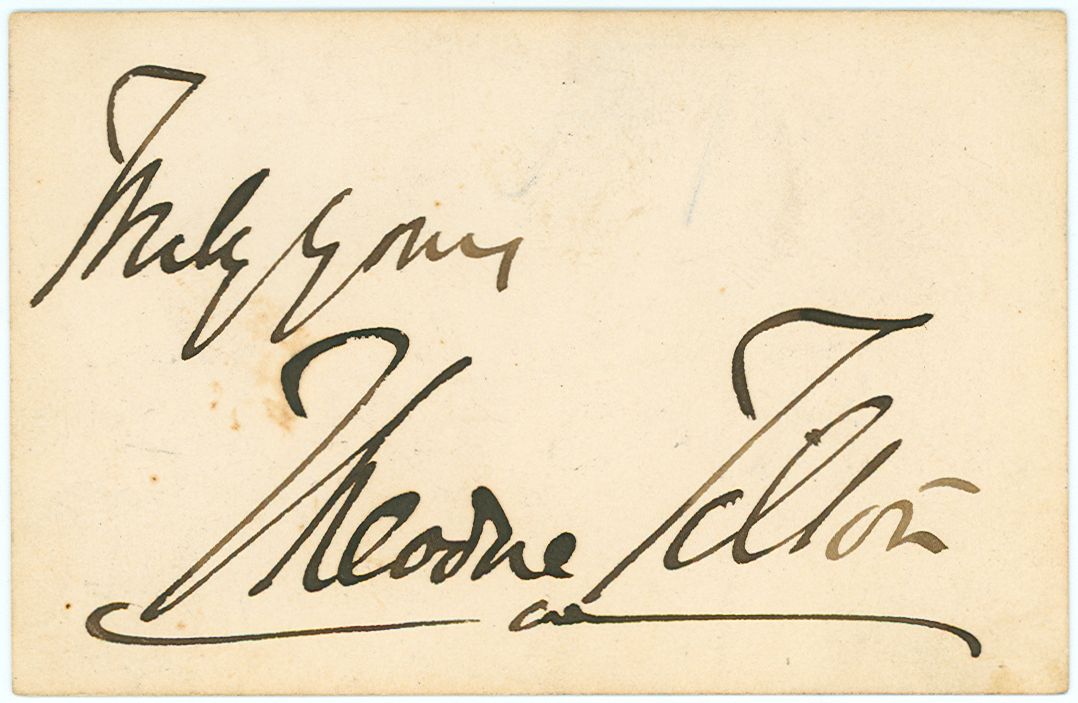 Truly yours
Theodore Tilton